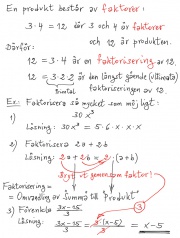 En produkt består av faktorer:
3 · 4 = 12 där 3 och 4 är faktorer
och 12 är produkten.
Därför:
12 = 3 · 4 är en faktorisering av 12.
12 = 3 · 2 · 2 är den längst gående (ultimata)
primtal
faktoriseringen av 12.
Ex: Faktorisera så mycket som möjligt:
1) 30x³
Lösning: 30x³ = 5 · 6 · x · x · x
2) Faktorisera 2a + 2b
Lösning: 2a + 2·b = 2·(a+b)
Bryt ut gemensam faktor!
Faktorisering =
= Omvandling av Summa till Produkt
3) Förenkla (3x-15)/3
Lösning: (3x-15)/3 = 3·(x-5)/3 = x-5